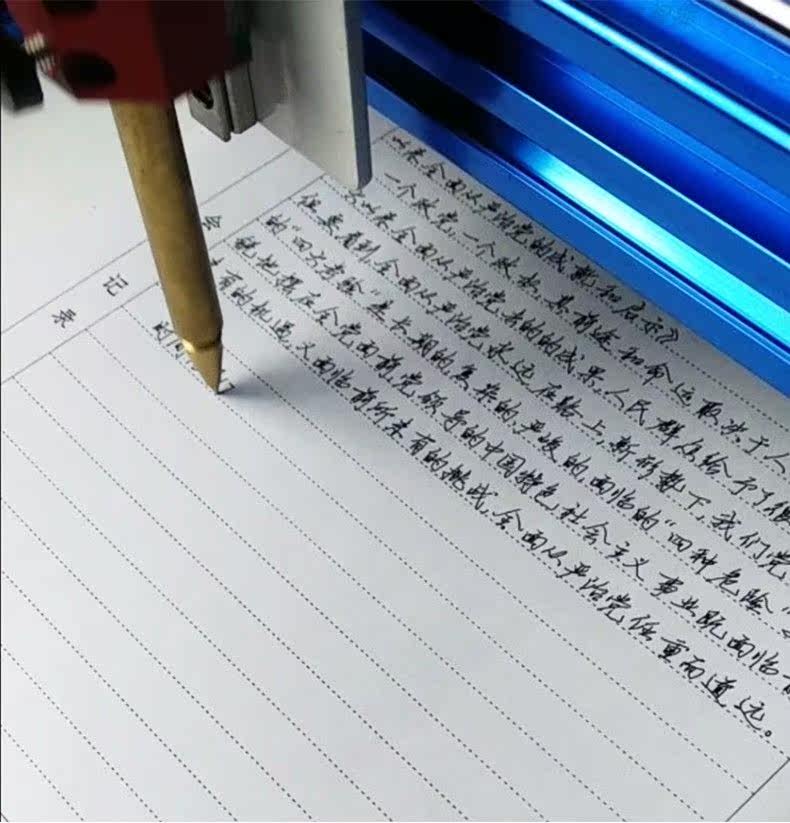 会 记 录
以来全面从严治党的成就和启示》
一个政党,一个政权,其前途和命运取决于人
以来全面从严治党的成果,人民群众给予了很
但要看到,全面从严治党永远在路上,新形势下,我们党
的“四大考验”是长期的,复杂的,严峻的,面临的“四种危险”
摆在全党面前,党领导的中国特色社会主义事业既面临前
有的机遇,又面临前所未有的挑战,全面从严治党任重而道远。
时间